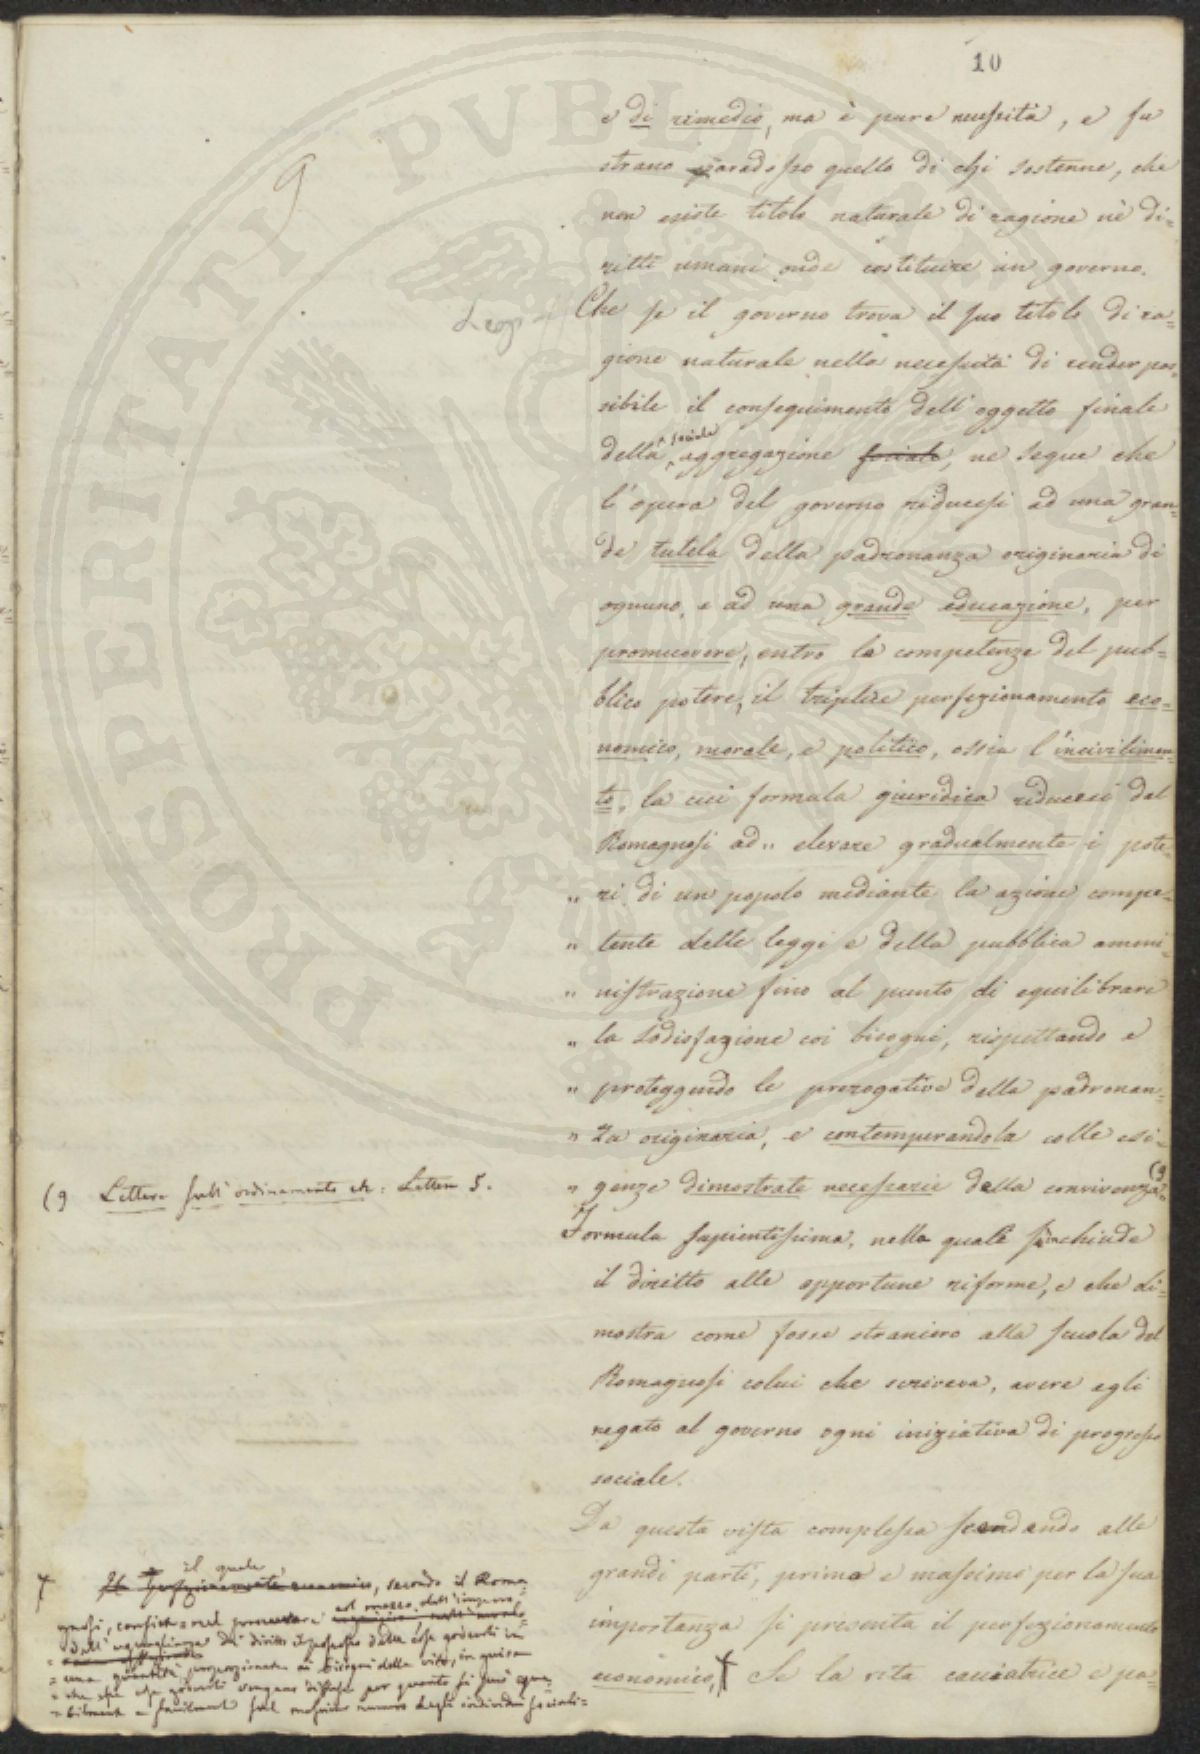 10
9
e di rimedio, ma è pure necessità, e fu
strano paradosso quello di chi sostenne, che
non esiste titolo naturale di ragione nè di=
ritti umani onde costituire un governo.
Che se il governo trova il suo titolo di ra=
gione naturale nella necessità di render pos=
sibile il conseguimento dell'oggetto finale
della sociale aggregazione sociale, ne segue che
l'opera del governo riducesi ad una gran=
de tutela della padronanza originaria di
ognuno, e ad una grande educazione, per
promuovere, entro la competenza del pub=
blico potere, il triplice perfezionamento eco=
nomico, morale, e politico, ossia l'incivilimen=
to, la cui formula giuridica riducesi dal
Romagnosi ad „ elevare gradualmente i pote=
„ ri di un popolo mediante la azione compe=
„ tente delle leggi e della pubblica ammi=
„ nistrazione fino al punto di equilibrare
„ la sodisfazione coi bisogni, rispettando e
„ proteggendo le prerogative della padronan=
„ za originaria, e contemperandola colle esi=
„ genze dimostrate necessarie della convivenza (9
Formula sapientissima, nella quale si inchiude
il diritto alle opportune riforme, e che di=
mostra come fosse straniero alla scuola del
Romagnosi colui che scriveva, avere egli
negato al governo ogni iniziativa di progresso
sociale.
Da questa vista complessa scendendo alle
grandi parti, prima e massima per la sua
importanza si presenta il perfezionamento
economico, + Se la rita e pa=
(9 Lettere sull'ordinamento etc: Lettera 5.
PROSPERITATI PVBLICAE
+ il quale
Il perfezionamento economico, secondo il Roma=
gnosi, consiste nel procurare col mezzo dell'
dell'uguaglianza dei diritti il possesso delle cose godevoli in
= una quantità proporzionata ai bisogni della vita, in guisa
= che esse cose godevoli vengano diffuse per quanto si può equa=
= bilmente e facilmente sul maggior numero degli individui sociali=